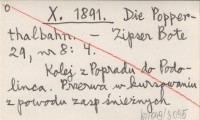 X. 1891. Die Popper-
thalbahn. – Zipser Bote
29, nr 8: 4.
Kolej z Popradu do Podo-
linca. Przerwa w kursowaniu
z powodu zasp śnieżnych